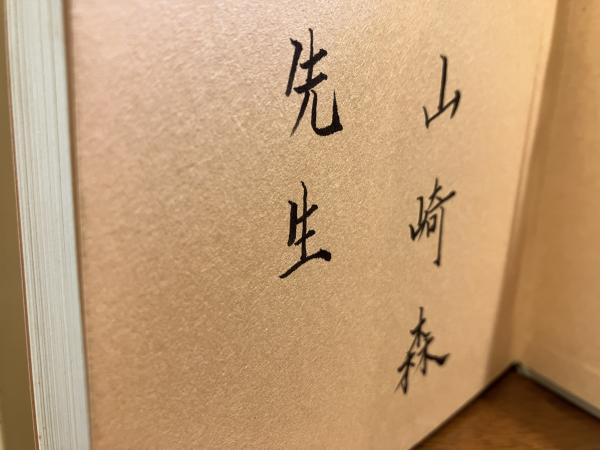 山崎森
先生